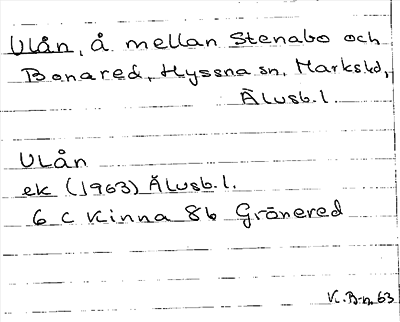 Ulån, å mellan Stenabo och
Bonared, Hyssna sn, Marks hd,
Älvsb. l.
ULån
ek (1963) Älvsb. l.
6 C Kinna 8b Gränered
V. B-n. 63